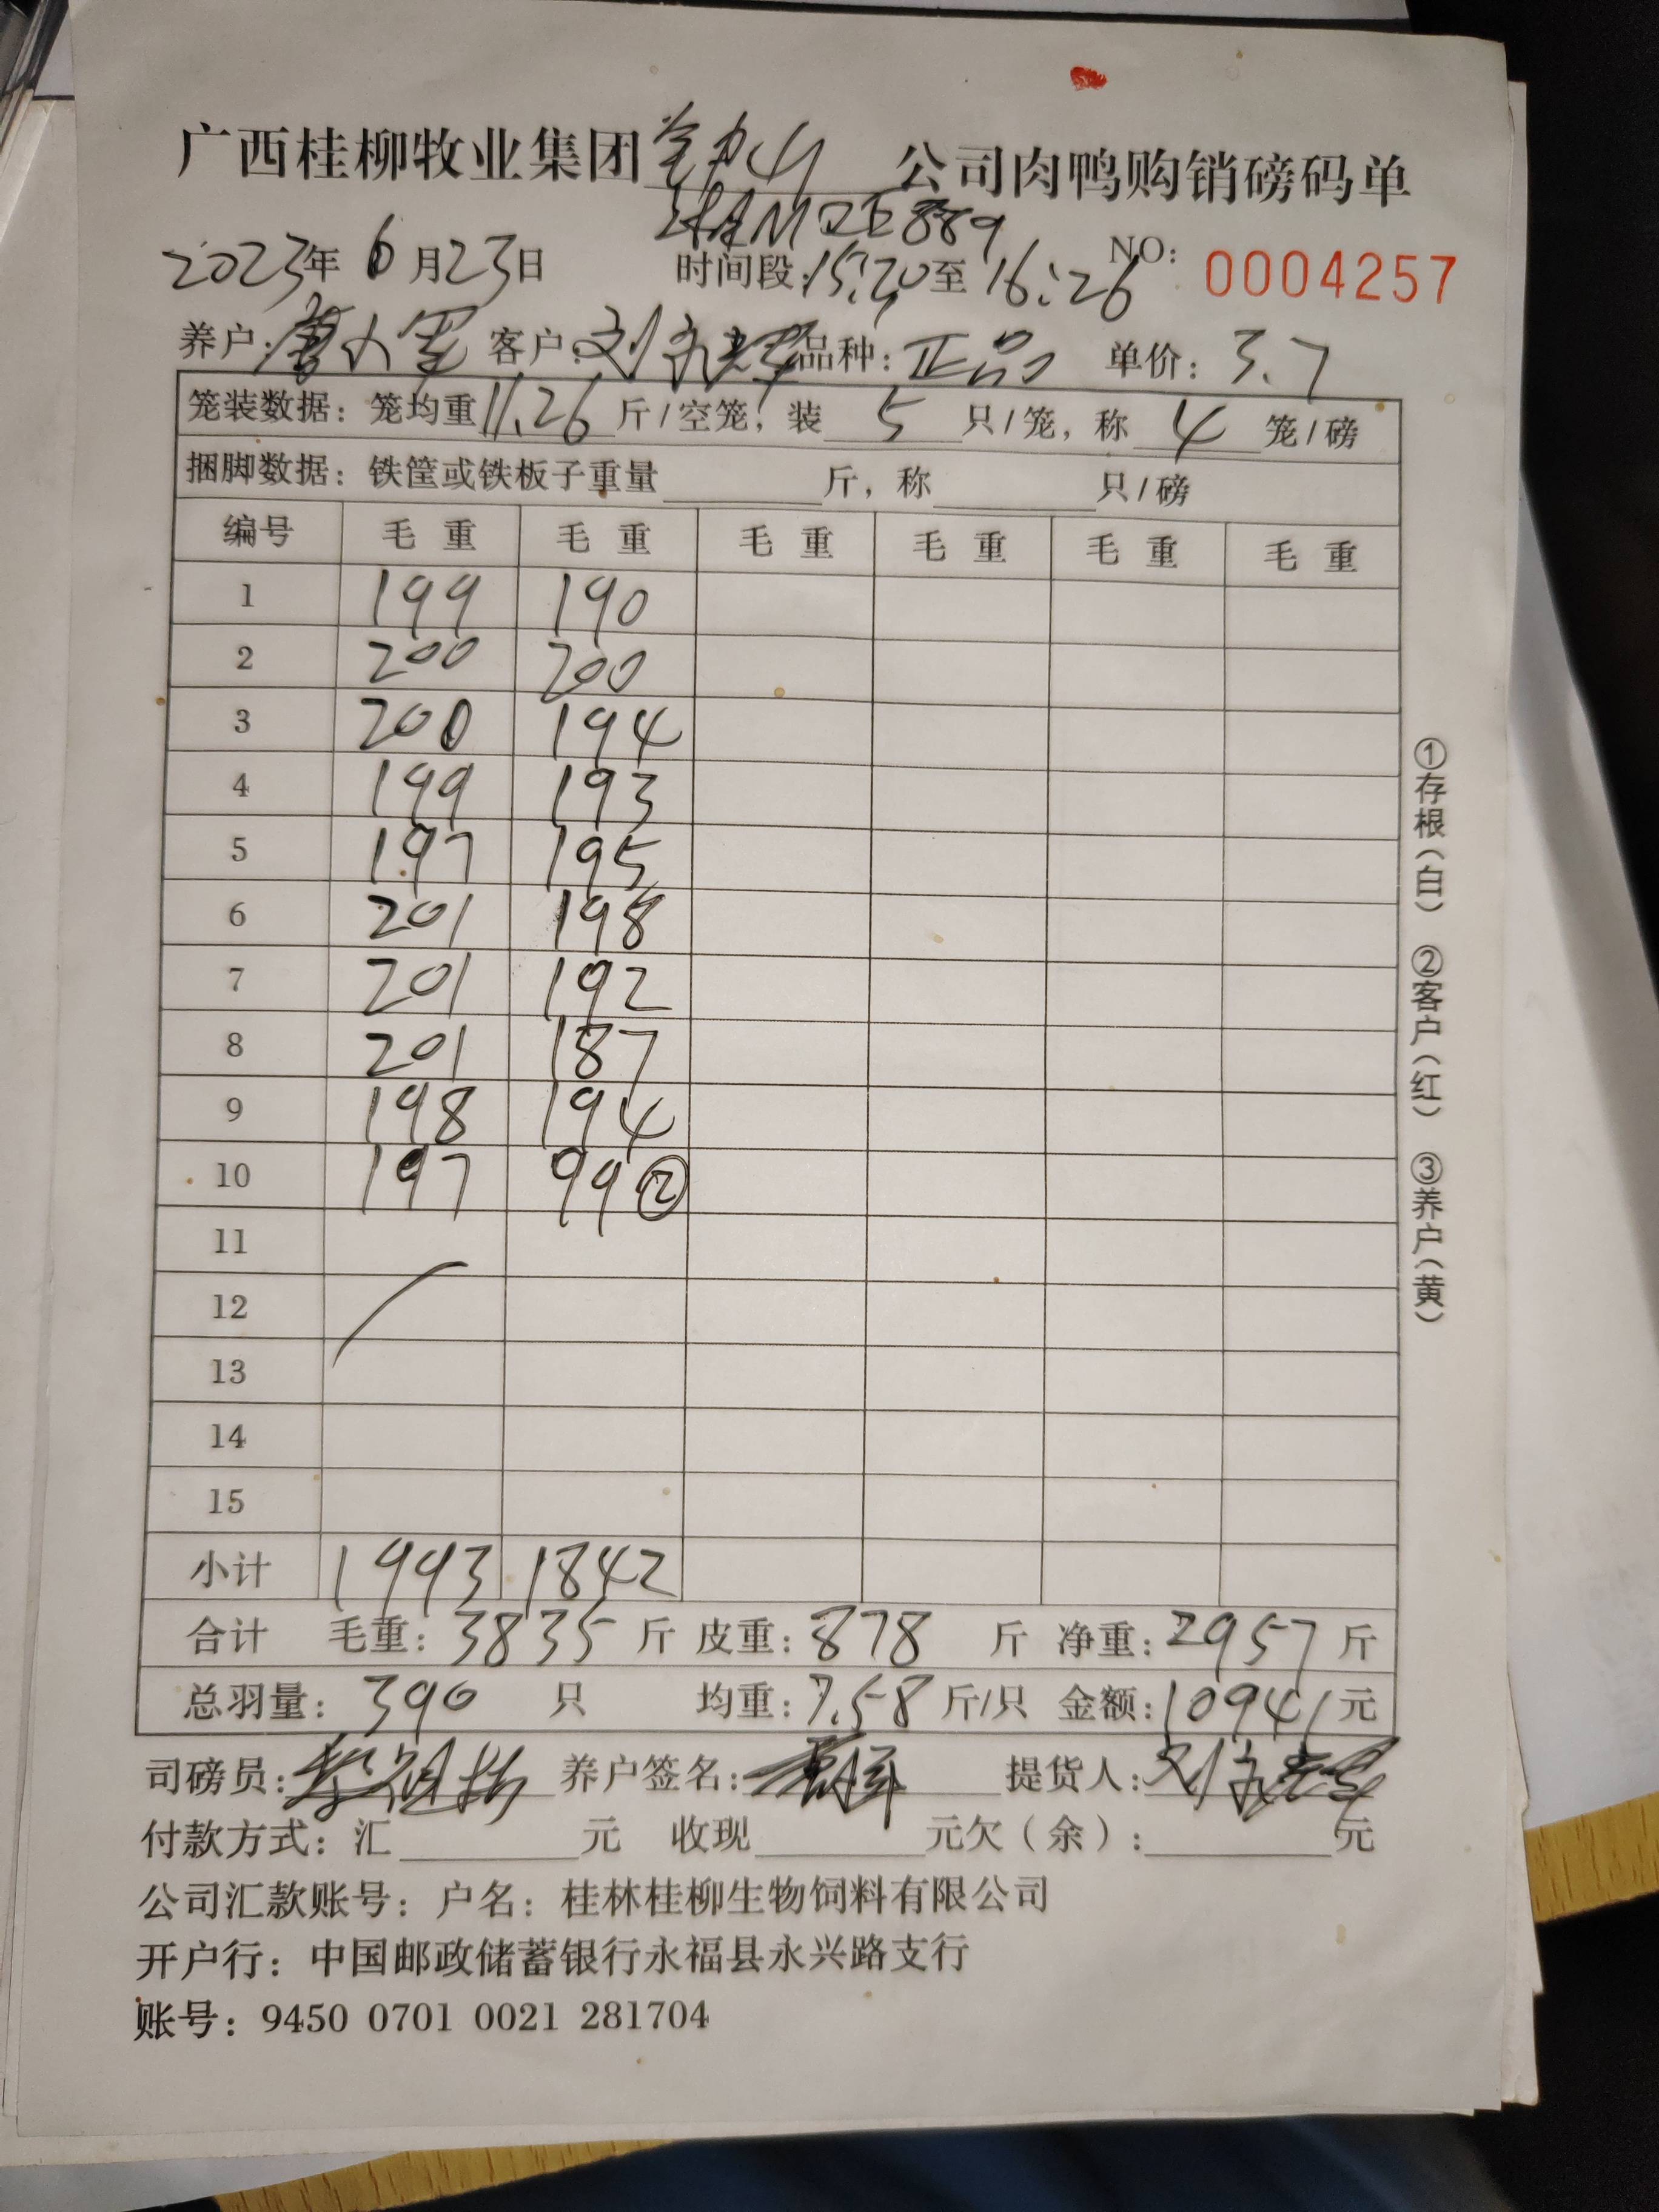 广西桂柳牧业集团 公司肉鸭购销磅码单
2023年6月23日 时间段:15:20至16:26 NO: 0004257
养户: 客户:刘 品种:正品 单价:3.7
笼装数据:笼均重11.26斤/空笼,装5只/笼,称4笼/磅
捆脚数据:铁筐或铁板子重量 斤,称 只/磅
编号 毛重 毛重 毛重 毛重 毛重 毛重
1 199 190
2 200 200
3 200 194
4 199 193
5 197 195
6 201 198
7 201 192
8 201 187
9 198 194
10 197 99②
11
12
13
14
15
小计 1993 1842
合计 毛重:3835斤 皮重:878斤 净重:2957斤
总羽量:390只 均重:7.58斤/只 金额:10941元
司磅员: 养户签名: 提货人:刘
付款方式:汇 元 收现 元欠(余): 元
公司汇款账号:户名:桂林桂柳生物饲料有限公司
开户行:中国邮政储蓄银行永福县永兴路支行
账号:9450 0701 0021 281704
①存根(白) ②客户(红) ③养户(黄)